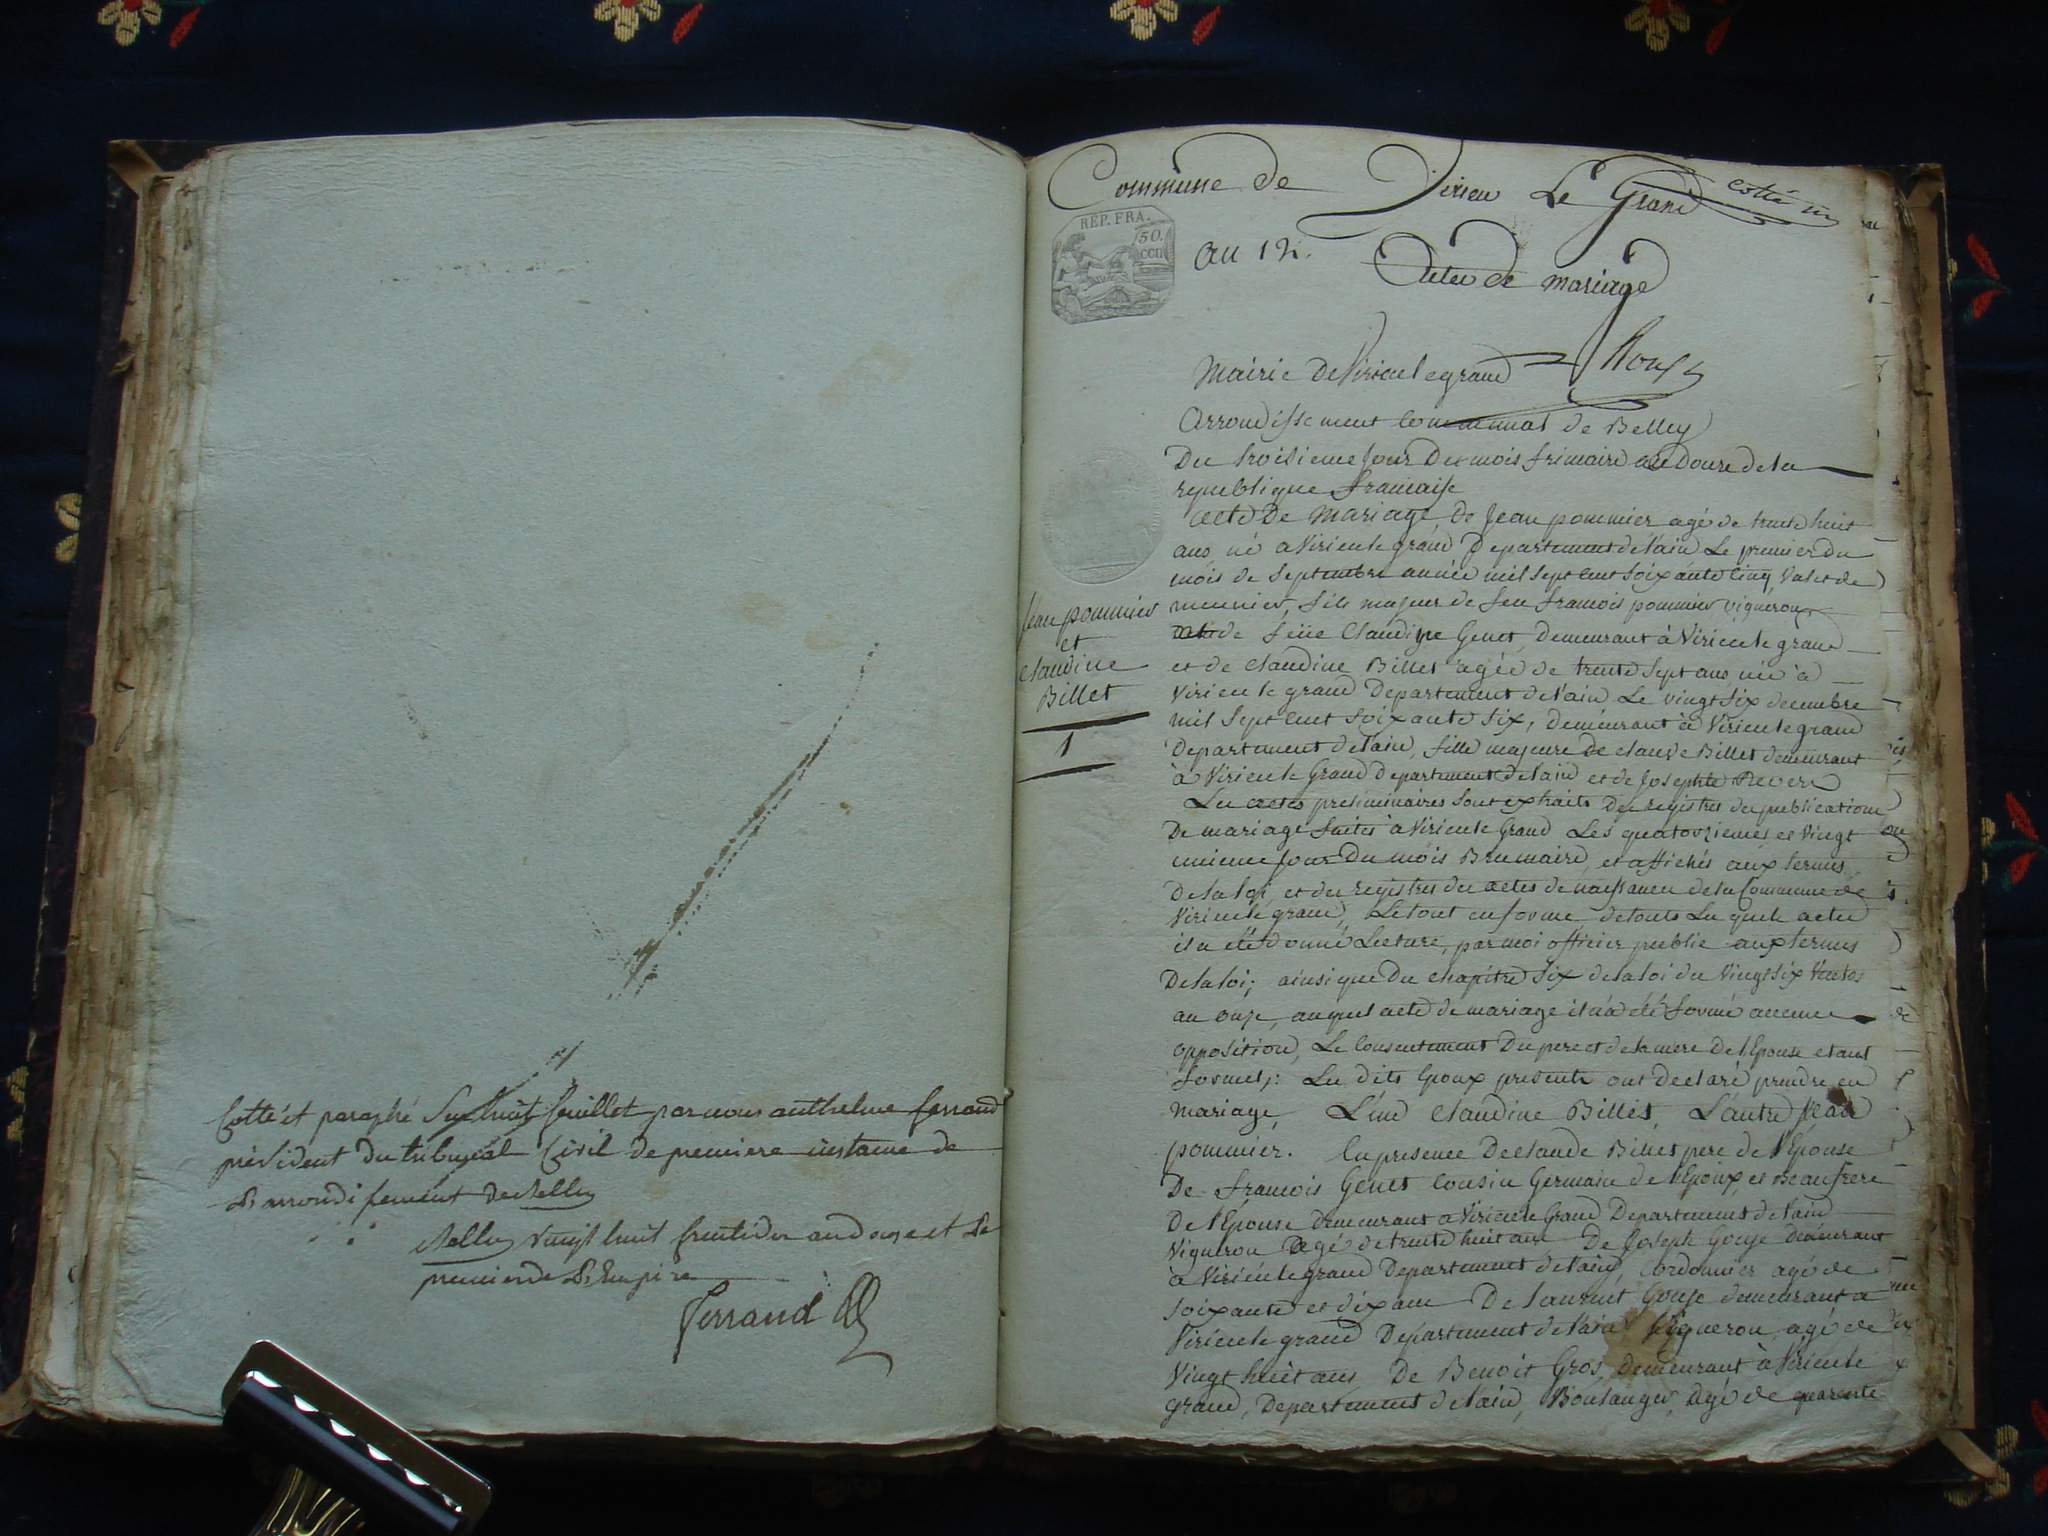 Cotté et paraphé Sur huit feuillet par nous anthelme ferrand
président du tribunal Civil de premiere instance de
L'arrondissement de Belley
Belley vingt huit fructidor an douze et Le
premier de L'Empire
Ferrand
Commune de Virieu Le Grand
cotté un
REP. FRA.
50. cen
an 12.
Actes de mariage
Mairie de Virieu le grand
Roux
Arrondissement communal de Belley
Du troisieme jour du mois frimaire an Douze de la
republique francaise
acte De mariage de Jean pommier agé de trente huit
ans né a Virieu le grand Departement de l'ain Le premier du
mois de Septembre année mil Sept cent Soixante Cinq Valet de
meunier, fils majeur de feu francois pommier vigneron
de feüe Claudine Genet, demeurant à Virieu le grand
et de claudine Billet agée de trente Sept ans née à
Virieu le grand Departement de l'ain Le vingt Six decembre
mil Sept cent Soixante Six, demeurant à Virieu le grand
Departement de l'ain, fille majeure de claude Billet demeurant
à Virieu le Grand Departement de l'ain et de Josephte Rever
Les actes preliminaires Sont extraits des registres des publications
De mariage faites à Virieu le Grand Les quatorzieme et Vingt
unieme jour Du mois Brumaire, et affichés aux termes
De la loi, et des registres des actes de naissances de la Commune de
Virieu le grand, Le tout en forme de touts Les quels actes
il a été donné Lecture, par moi officier public aux termes
De la loi; ainsi que du chapitre Six de la loi du Vingt Six Ventos
an onze, auquel acte de mariage il n'a été formé aucune
opposition, Le Consentement Du pere et de la mere De l'Epouse etant
formel; Les dits Epoux presents ont declaré prendre en
mariage, L'une claudine Billet, L'autre Jean
pommier. En presence De claude Billet pere de l'Epouse
De francois Genet Cousin Germain de l'Epoux, et Beaufrere
De l'Epouse demeurant a Virieu le Grand Departement de l'ain
Vigneron agé de trente huit ans De Joseph Gouje demeurant
à Virieu le grand Departement de l'ain, Cordonnier agé de
Soixante et dix ans De Laurent Gouje demeurant a
Virieu le grand Departement de l'ain Vigneron, agé de
Vingt huit ans De Benoit Gros, demeurant à Virieu le
grand, Departement de l'ain, Boulanger, agé de quarente
Jean pommier
et
claudine
Billet
1